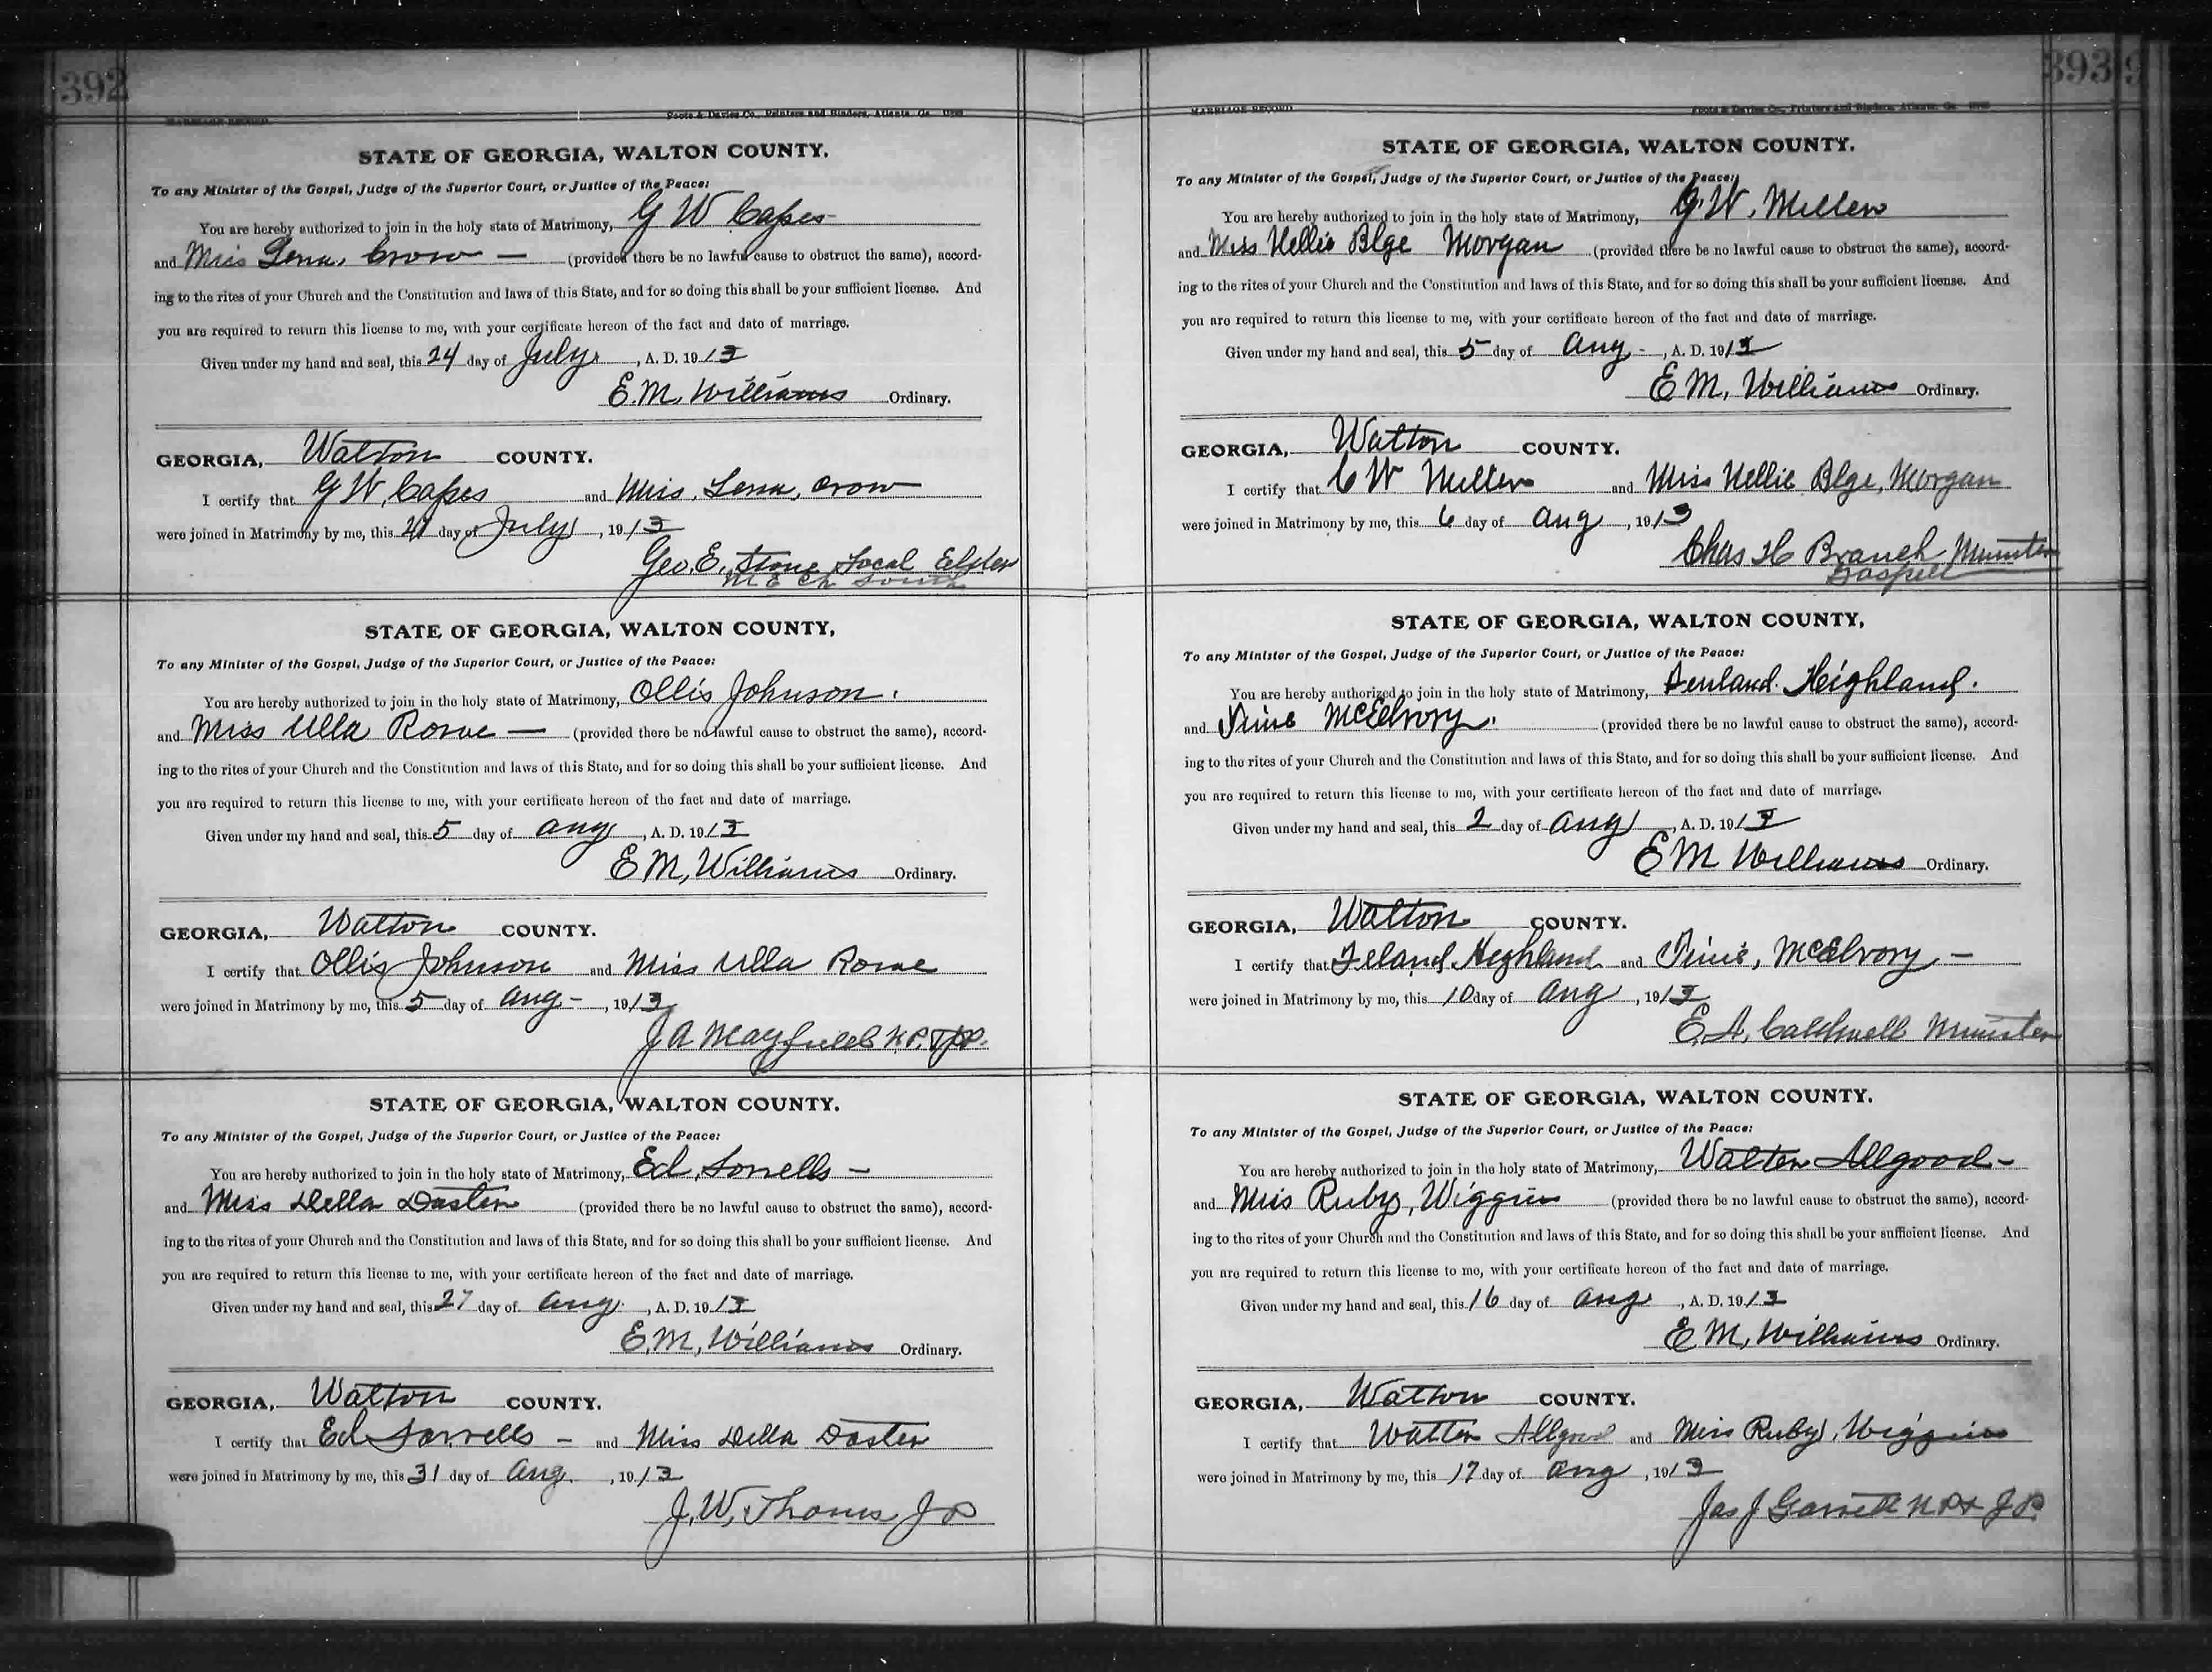 392
MARRIAGE RECORD
Foote & Davies Co., Printers and Binders, Atlanta, Ga.
STATE OF GEORGIA, WALTON COUNTY.
To any Minister of the Gospel, Judge of the Superior Court, or Justice of the Peace:
You are hereby authorized to join in the holy state of Matrimony, G W Capes
and Miss Lena, Crow — (provided there be no lawful cause to obstruct the same), accord-
ing to the rites of your Church and the Constitution and laws of this State, and for so doing this shall be your sufficient license. And
you are required to return this license to me, with your certificate hereon of the fact and date of marriage.
Given under my hand and seal, this 24 day of July, A. D. 1913
E. M. Williams Ordinary.
GEORGIA, Walton COUNTY.
I certify that G W, Capes and Miss. Lena, Crow
were joined in Matrimony by me, this day of July, 1913
Geo. E. Stone Local Elder
M E Ch South
STATE OF GEORGIA, WALTON COUNTY,
To any Minister of the Gospel, Judge of the Superior Court, or Justice of the Peace:
You are hereby authorized to join in the holy state of Matrimony, Ollis Johnson.
and Miss Ulla — (provided there be no lawful cause to obstruct the same), accord-
ing to the rites of your Church and the Constitution and laws of this State, and for so doing this shall be your sufficient license. And
you are required to return this license to me, with your certificate hereon of the fact and date of marriage.
Given under my hand and seal, this 5 day of Aug, A. D. 1913
E M, Williams Ordinary.
GEORGIA, Walton COUNTY.
I certify that Ollis Johnson and Miss Ulla
were joined in Matrimony by me, this 5 day of Aug -, 1913
J A Mayfield
STATE OF GEORGIA, WALTON COUNTY.
To any Minister of the Gospel, Judge of the Superior Court, or Justice of the Peace:
You are hereby authorized to join in the holy state of Matrimony, Ed, Sorrells —
and Miss Della Daster (provided there be no lawful cause to obstruct the same), accord-
ing to the rites of your Church and the Constitution and laws of this State, and for so doing this shall be your sufficient license. And
you are required to return this license to me, with your certificate hereon of the fact and date of marriage.
Given under my hand and seal, this 27 day of Aug, A. D. 1913
E. M, Williams Ordinary.
GEORGIA, Walton COUNTY.
I certify that Ed Sorrells - and Miss Della Doster
were joined in Matrimony by me, this 31 day of Aug., 1913
J. W, Thomas J P
393
MARRIAGE RECORD
Foote & Davies Co., Printers and Binders, Atlanta, Ga.
STATE OF GEORGIA, WALTON COUNTY.
To any Minister of the Gospel, Judge of the Superior Court, or Justice of the Peace:
You are hereby authorized to join in the holy state of Matrimony, G. W. Miller
and Miss Nellie Blge Morgan (provided there be no lawful cause to obstruct the same), accord-
ing to the rites of your Church and the Constitution and laws of this State, and for so doing this shall be your sufficient license. And
you are required to return this license to me, with your certificate hereon of the fact and date of marriage.
Given under my hand and seal, this 5 day of Aug -, A. D. 1913
E M, Williams Ordinary.
GEORGIA, Walton COUNTY.
I certify that C W Miller and Miss Nellie Blge, Morgan
were joined in Matrimony by me, this 6 day of Aug, 1913
Chas H Branch, Minister
Gospell
STATE OF GEORGIA, WALTON COUNTY,
To any Minister of the Gospel, Judge of the Superior Court, or Justice of the Peace:
You are hereby authorized to join in the holy state of Matrimony, Highland.
and McElvory. (provided there be no lawful cause to obstruct the same), accord-
ing to the rites of your Church and the Constitution and laws of this State, and for so doing this shall be your sufficient license. And
you are required to return this license to me, with your certificate hereon of the fact and date of marriage.
Given under my hand and seal, this 2 day of Aug, A. D. 1913
E M Williams Ordinary.
GEORGIA, Walton COUNTY.
I certify that Highland and McElvory —
were joined in Matrimony by me, this 10 day of Aug, 1913
E. A, Caldwell Minister
STATE OF GEORGIA, WALTON COUNTY.
To any Minister of the Gospel, Judge of the Superior Court, or Justice of the Peace:
You are hereby authorized to join in the holy state of Matrimony, Walton Allgood -
and Miss Ruby, Wiggins (provided there be no lawful cause to obstruct the same), accord-
ing to the rites of your Church and the Constitution and laws of this State, and for so doing this shall be your sufficient license. And
you are required to return this license to me, with your certificate hereon of the fact and date of marriage.
Given under my hand and seal, this 16 day of Aug, A. D. 1913
E M, Williams Ordinary.
GEORGIA, Walton COUNTY.
I certify that Walton Allgood and Miss Ruby, Wiggins
were joined in Matrimony by me, this 17 day of Aug, 1913
Jas J Garrett N P & J P.